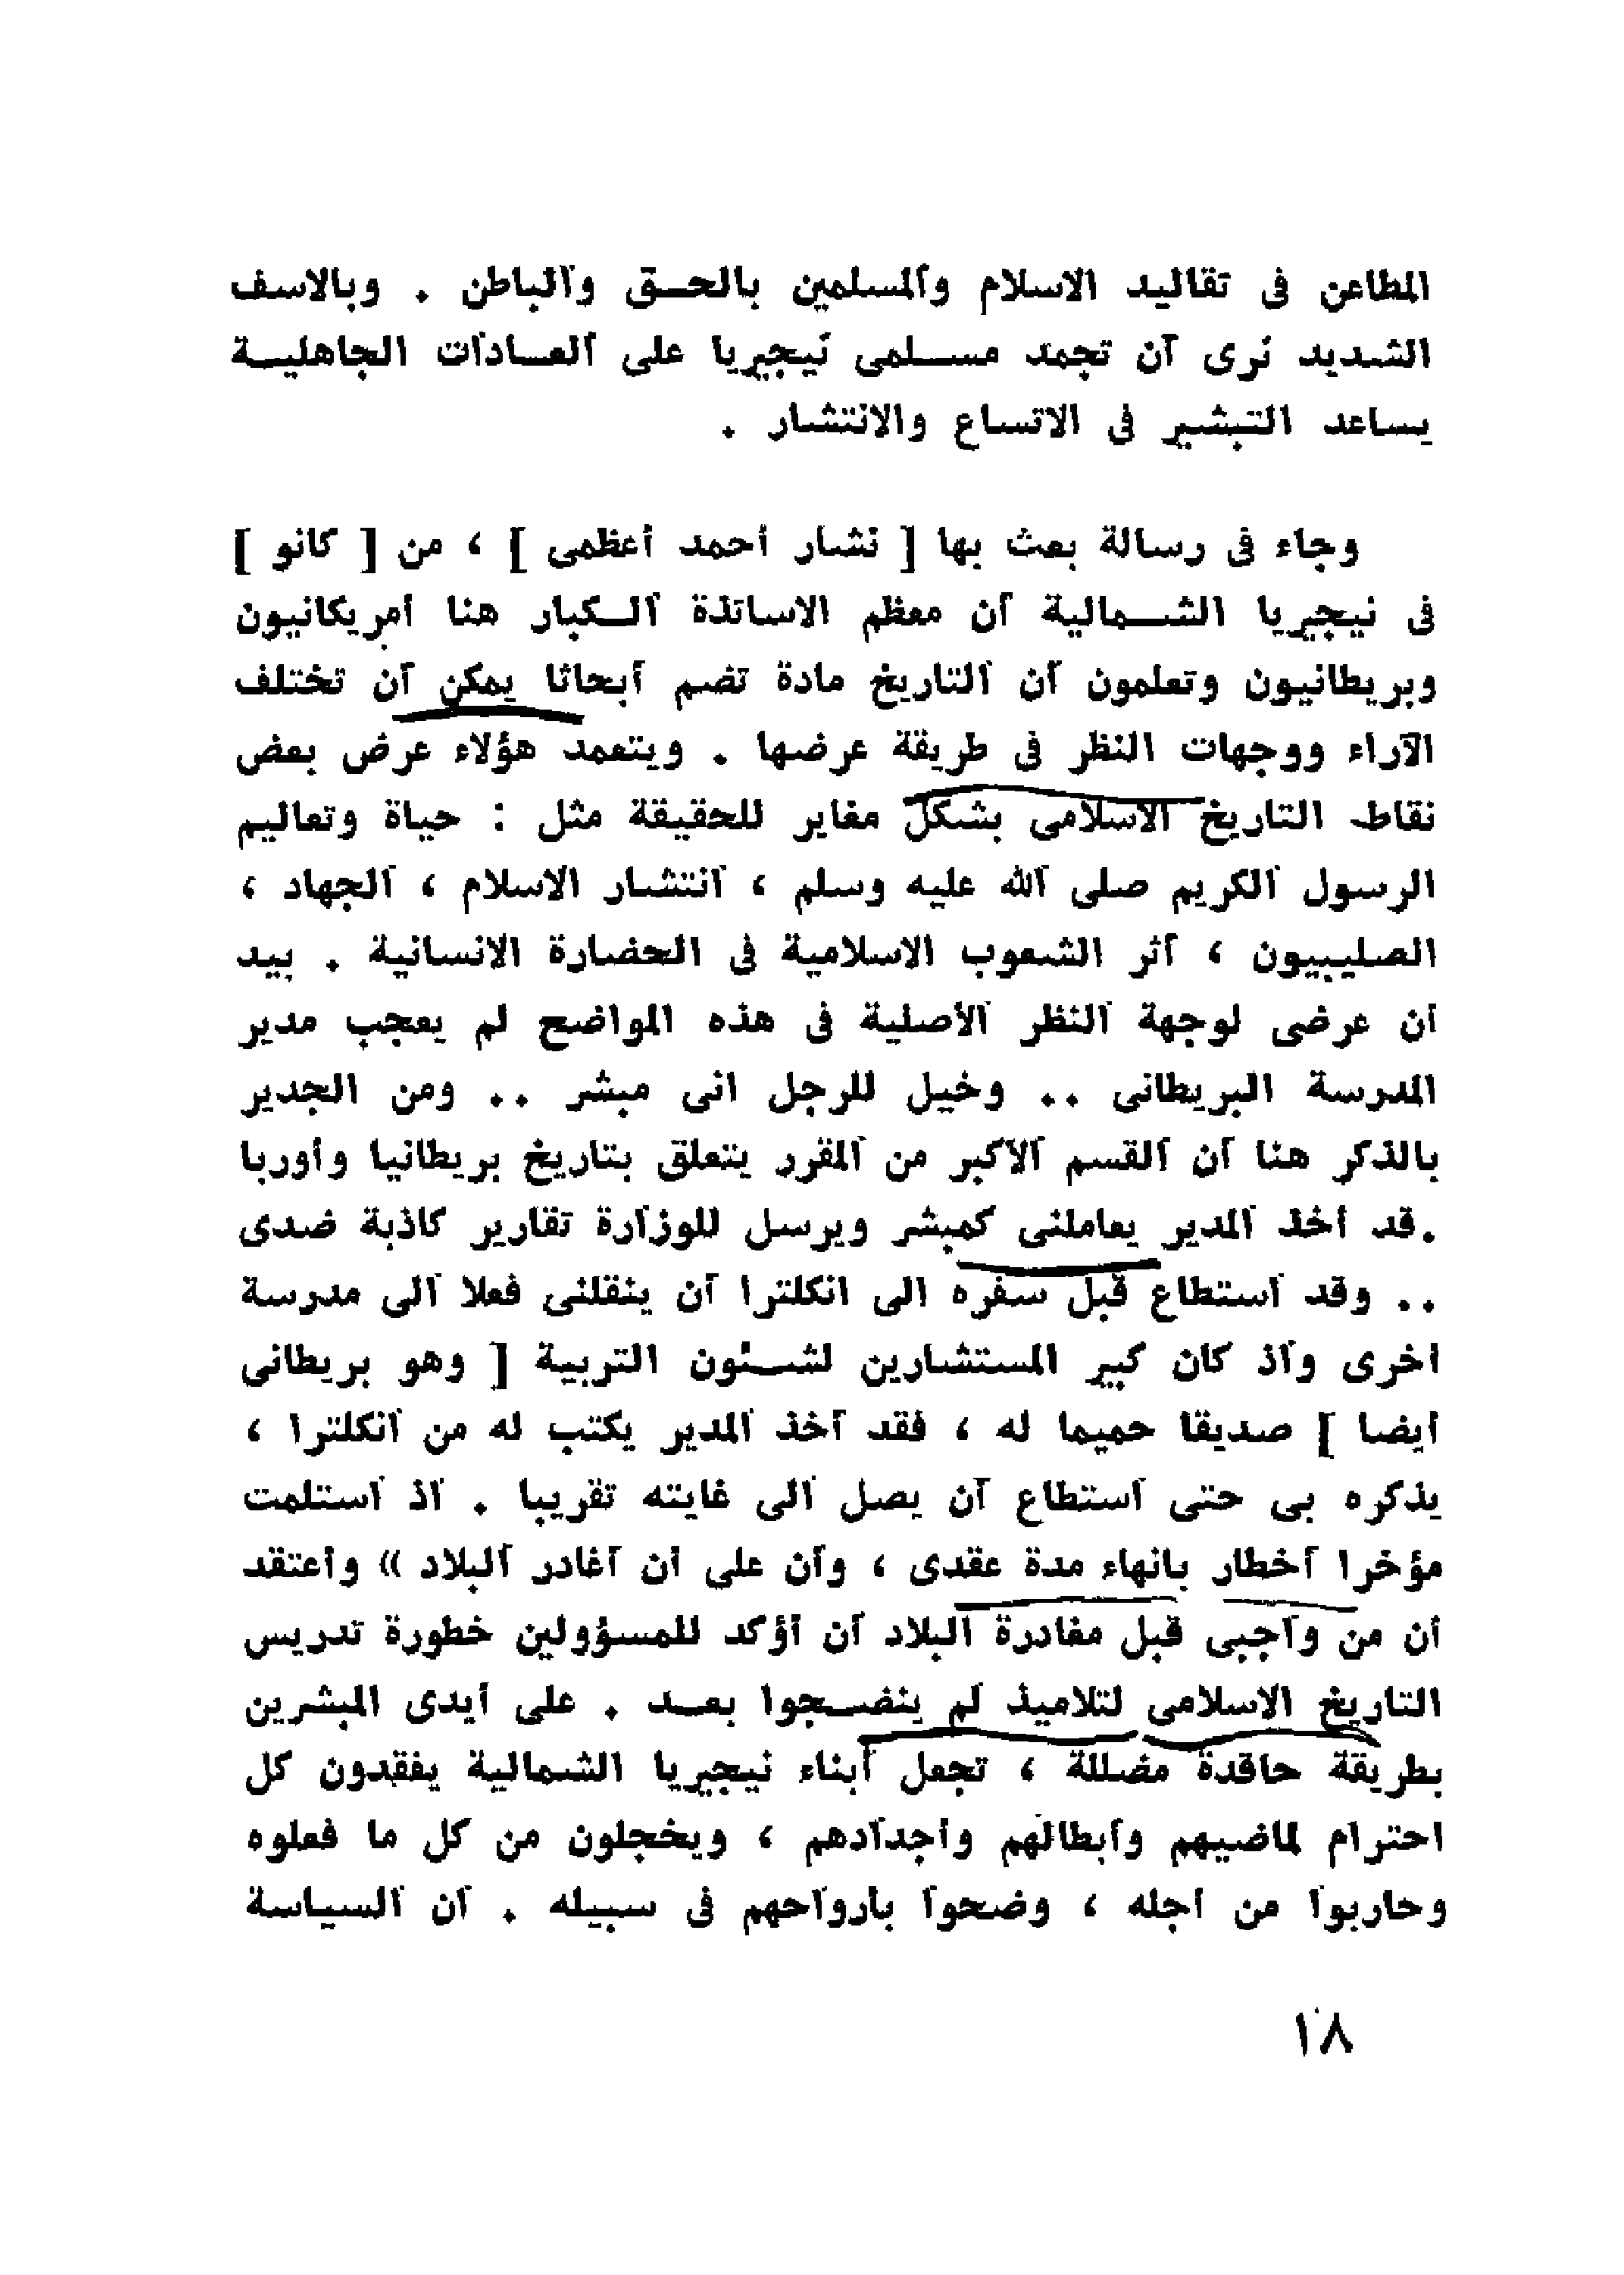 المطاعن فى تقاليد الاسلام والمسلمين بالحـق والباطن . وبالاسف
الشديد نرى أن تجمد مسـلمى نيجيريا على العـادات الجاهليـة
يساعد التبشير فى الاتساع والانتشار .
وجاء فى رسالة بعث بها [ نشار أحمد أعظمى ] ، من [ كانو ]
فى نيجيريا الشـمالية أن معظم الاساتذة الـكبار هنا أمريكانيون
وبريطانيون وتعلمون أن التاريخ مادة تضم أبحاثا يمكن أن تختلف
الآراء ووجهات النظر فى طريقة عرضها . ويتعمد هؤلاء عرض بعض
نقاط التاريخ الاسلامى بشكل مغاير للحقيقة مثل : حياة وتعاليم
الرسول الكريم صلى الله عليه وسلم ، انتشار الاسلام ، الجهاد ،
الصليبيون ، أثر الشعوب الاسلامية فى الحضارة الانسانية . بيد
أن عرضى لوجهة النظر الأصلية فى هذه المواضح لم يعجب مدير
المدرسة البريطانى .. وخيل للرجل انى مبشر .. ومن الجدير
بالذكر هنا أن القسم الأكبر من المقرر يتعلق بتاريخ بريطانيا وأوربا
.قد أخذ المدير يعاملنى كمبشر ويرسل للوزارة تقارير كاذبة ضدى
.. وقد استطاع قبل سفره الى انكلترا أن ينقلنى فعلا الى مدرسة
أخرى واذ كان كبير المستشارين لشـئون التربية [ وهو بريطانى
أيضا ] صديقا حميما له ، فقد أخذ المدير يكتب له من انكلترا ،
يذكره بى حتى استطاع أن يصل الى غايته تقريبا . اذ استلمت
مؤخرا أخطار بانهاء مدة عقدى ، وأن على أن أغادر البلاد » وأعتقد
أن من واجبى قبل مغادرة البلاد أن أؤكد للمسؤولين خطورة تدريس
التاريخ الاسلامى لتلاميذ لم ينضـجوا بعـد . على أيدى المبشرين
بطريقة حاقدة مضللة ، تجعل أبناء نيجيريا الشمالية يفقدون كل
احترام لماضيهم وأبطالهم وأجدادهم ، ويخجلون من كل ما فعلوه
وحاربوا من أجله ، وضحوا بارواحهم فى سبيله . أن السياسة
١٨